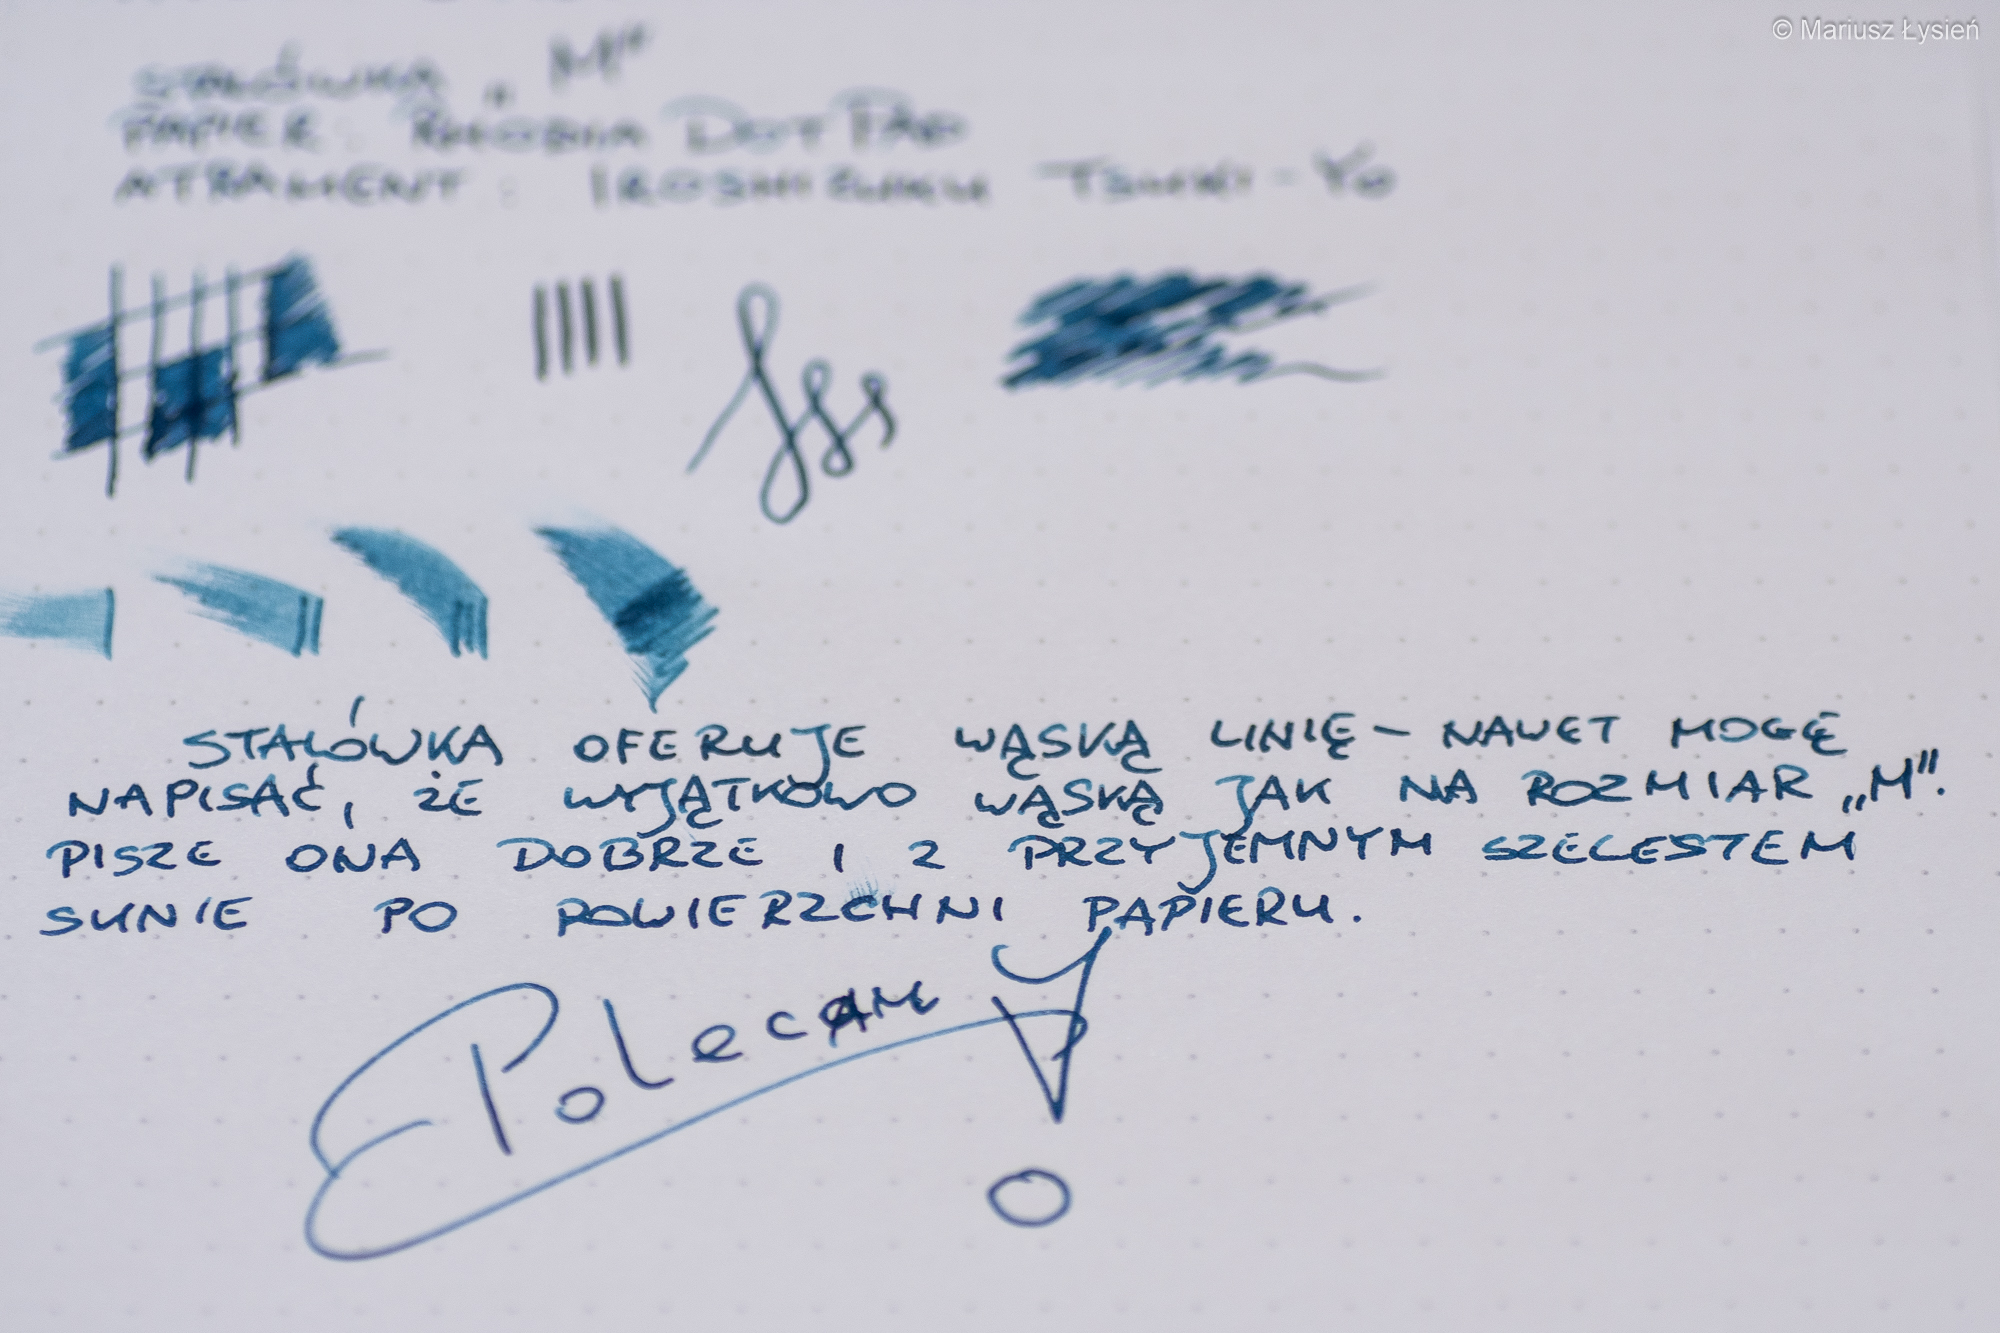 © Mariusz Łysień
STALÓWKA „M"
PAPIER: RHODIA DOTPAD
ATRAMENT: IROSHIZUKU TSUKI-YO
STALÓWKA OFERUJE WĄSKĄ LINIĘ – NAWET MOGĘ
NAPISAĆ, ŻE WYJĄTKOWO WĄSKĄ JAK NA ROZMIAR „M".
PISZE ONA DOBRZE I Z PRZYJEMNYM SZELESTEM
SUNIE PO POWIERZCHNI PAPIERU.
Polecam!